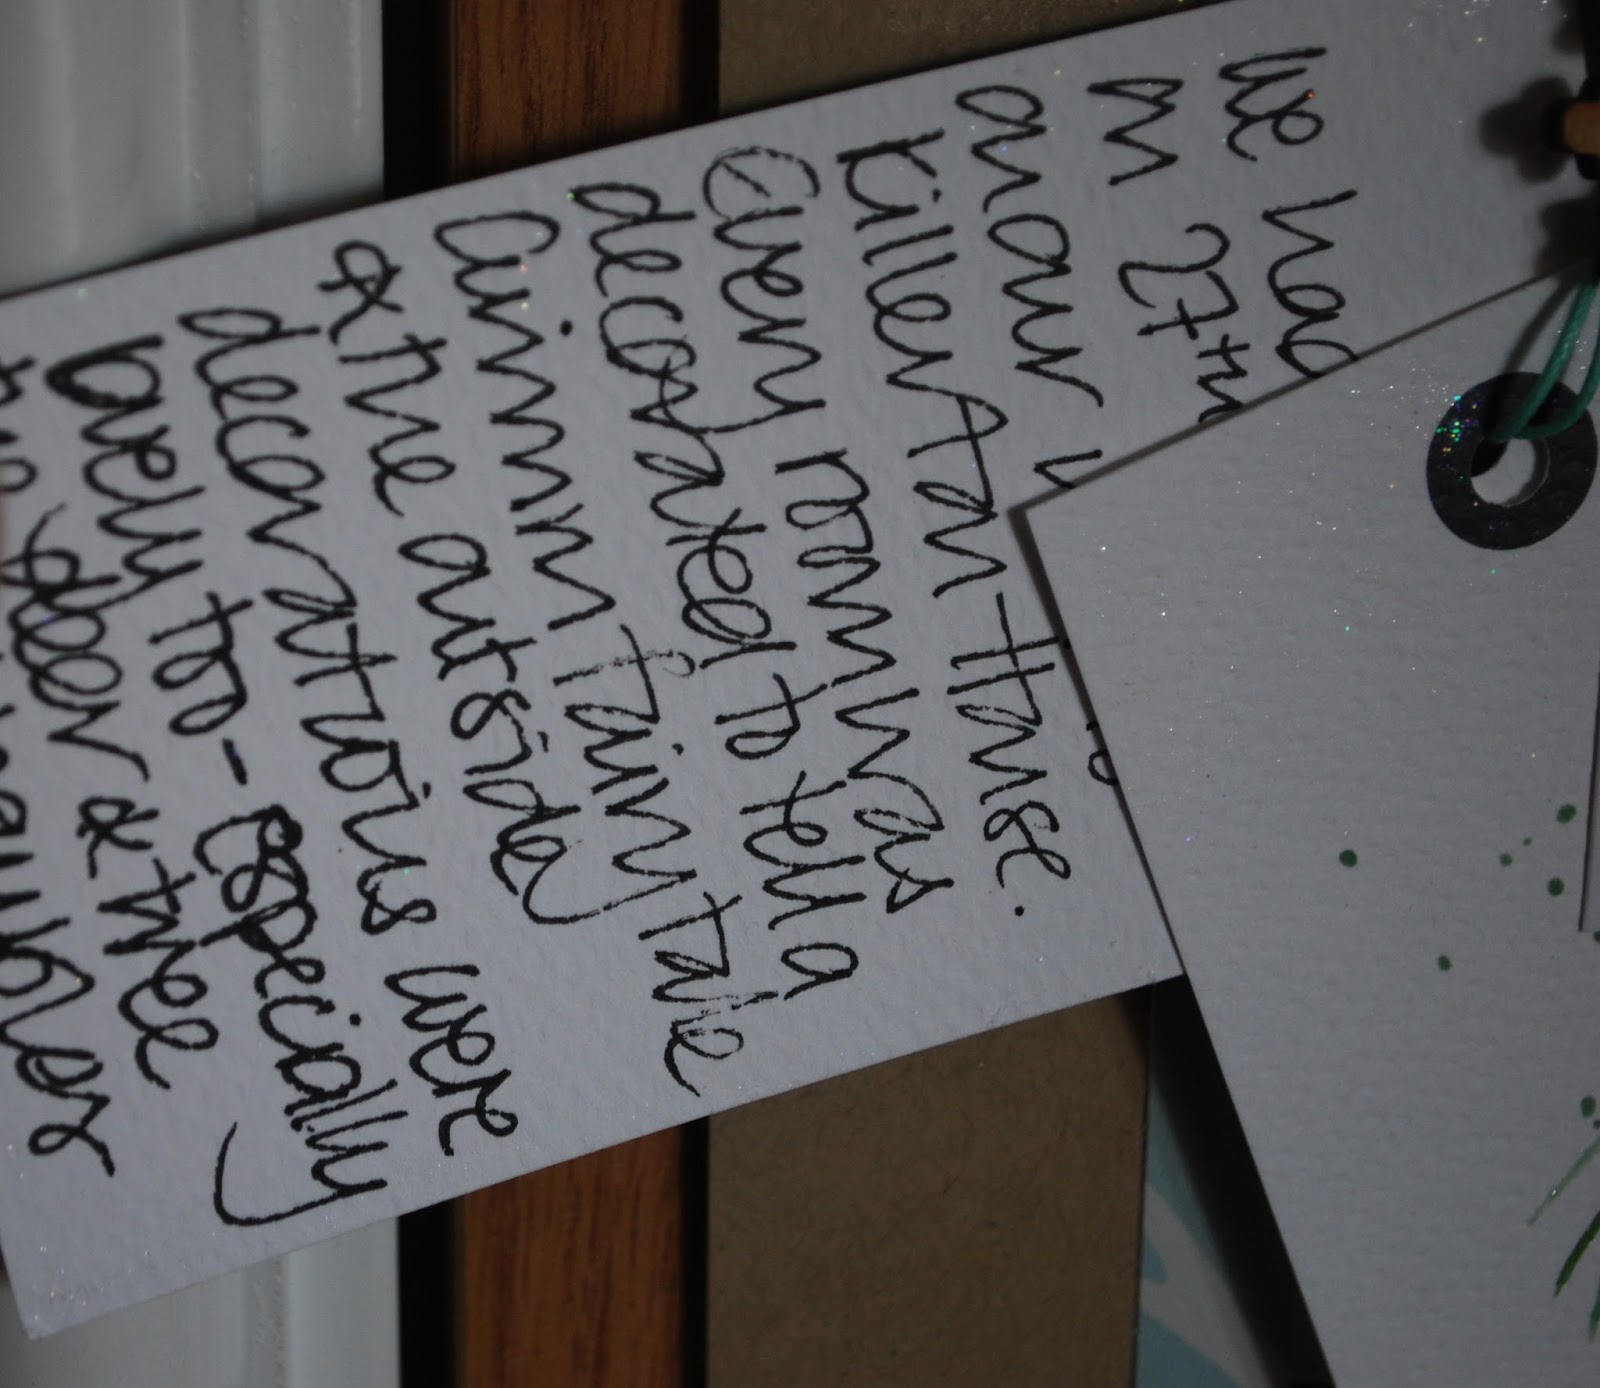 We had
on 27th
on our
Killerton House.
Every room was
decorated to tell a
Grimm Fairy tale
& the outside
decorations were
lovely too - especially
the deer & the